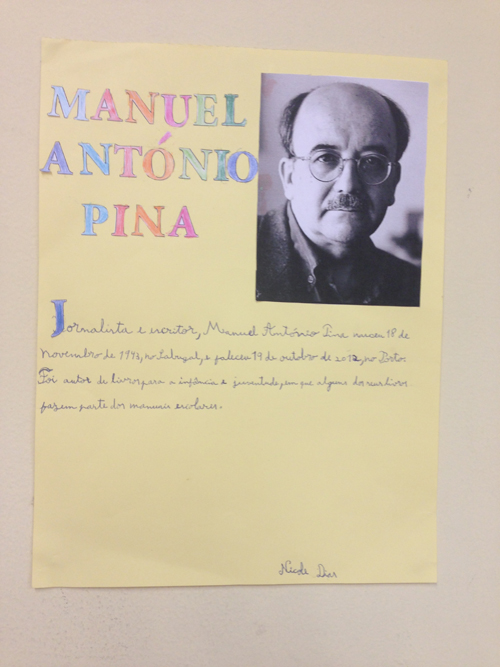 MANUEL
ANTÓNIO
PINA
Jornalista e escritor, Manuel António Pina nasceu 18 de
Novembro de 1943, no Sabugal, e faleceu 19 de outubro de 2012, no Porto.
Foi autor de livros para a infância e juventude, em que alguns dos seus livros
fazem parte dos manuais escolares.
Nicole Dias